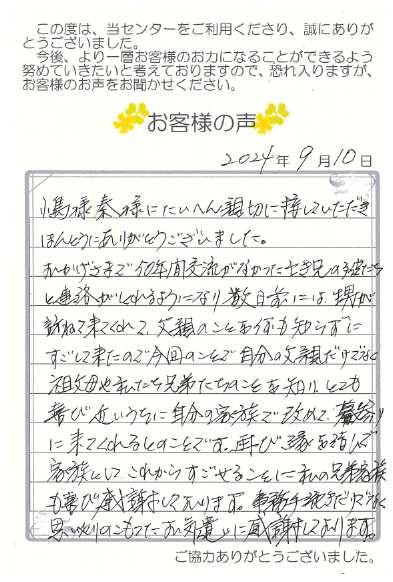 この度は、当センターをご利用くださり、誠にありが
とうございました。
今後、より一層お客様のお力になることができるよう
努めていきたいと考えておりますので、恐れ入りますが、
お客様のお声をお聞かせください。
お客様の声
2024年9月10日
嶋様 秦様にたいへん親切に接していただき
ほんとうにありがとうございました。
おかげさまで 年間交流がなかった亡き兄の子達
と連絡がとれるようになり 数日前には 甥が
訪ねて来てくれて、父親のことを何も知らずに
すごして来たので今回のことで自分の父親だけでなく
祖父母や私たち兄弟たちのことを知り、とても
喜び 近いうちに自分の家族で改めて 墓参り
に来てくれるとのことです。再び縁を結び
家族として これからすごせることに私の兄弟家族
も喜び感謝しております。事務手続きだけでなく
思いやりのこもったお気遣いに感謝しております。
ご協力ありがとうございました。